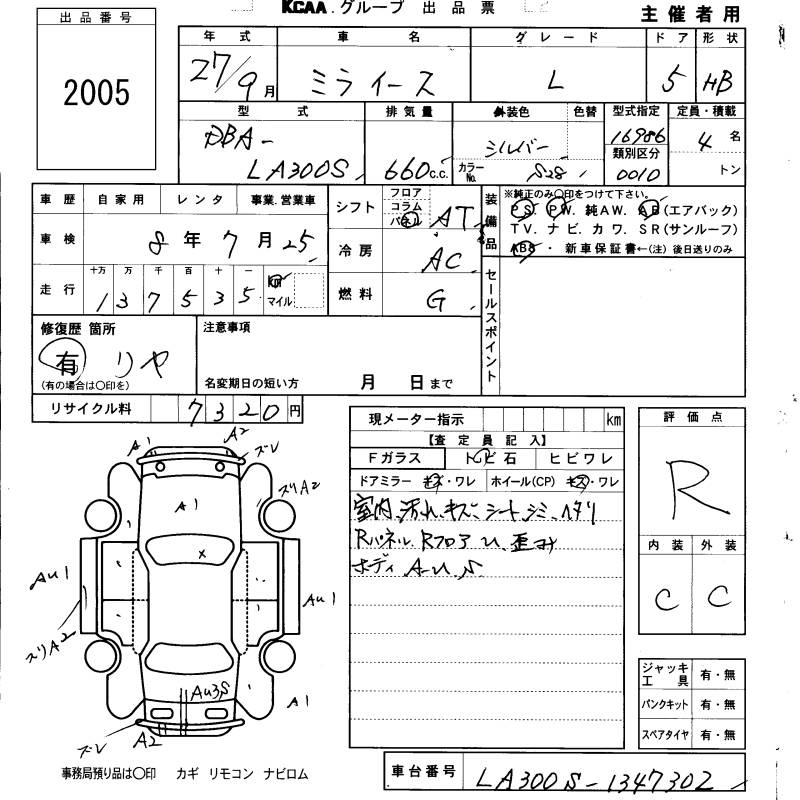 KCAA.グループ 出品票
主催者用
出品番号
2005
年式 車名 グレード ドア 形状
27/9月 ミライース L 5 HB
型式 排気量 外装色 色替 型式指定 定員・積載
DBA- シルバー 16986 4名
類別区分
LA300S 660c.c. カラーNo. S28 0010 トン
車歴 自家用 レンタ 事業.営業車
車検 8年7月25
走行 十万 万 千 百 十 一
137535 km マイル
シフト フロア コラム パネル AT
冷房 AC
燃料 G
装備品
※純正のみ○印をつけて下さい。
PS. PW. 純AW. AB(エアバック)
TV. ナビ. カワ. SR(サンルーフ)
ABS・新車保証書←(注)後日送りのみ
セールスポイント
修復歴 箇所
有 リヤ
(有の場合は○印を)
注意事項
名変期日の短い方 月 日まで
リサイクル料 7320円
現メーター指示 km
【査定員記入】
Fガラス トビ石 ヒビワレ
ドアミラー キズ・ワレ ホイール(CP) キズ・ワレ
室内、汚れ、キズ、シートシミ、ヘタリ
Rパネル、RフロアU、歪み
ボディ A-U、S
評価点
R
内装 外装
C C
ジャッキ工具 有・無
パンクキット 有・無
スペアタイヤ 有・無
A1 A2 ズレ
スリA2
A1
x
AU1 AU1
スリA2
AU3,S
A1
ズレ A2
事務局預り品は○印 カギ リモコン ナビロム
車台番号 LA300S-1347302